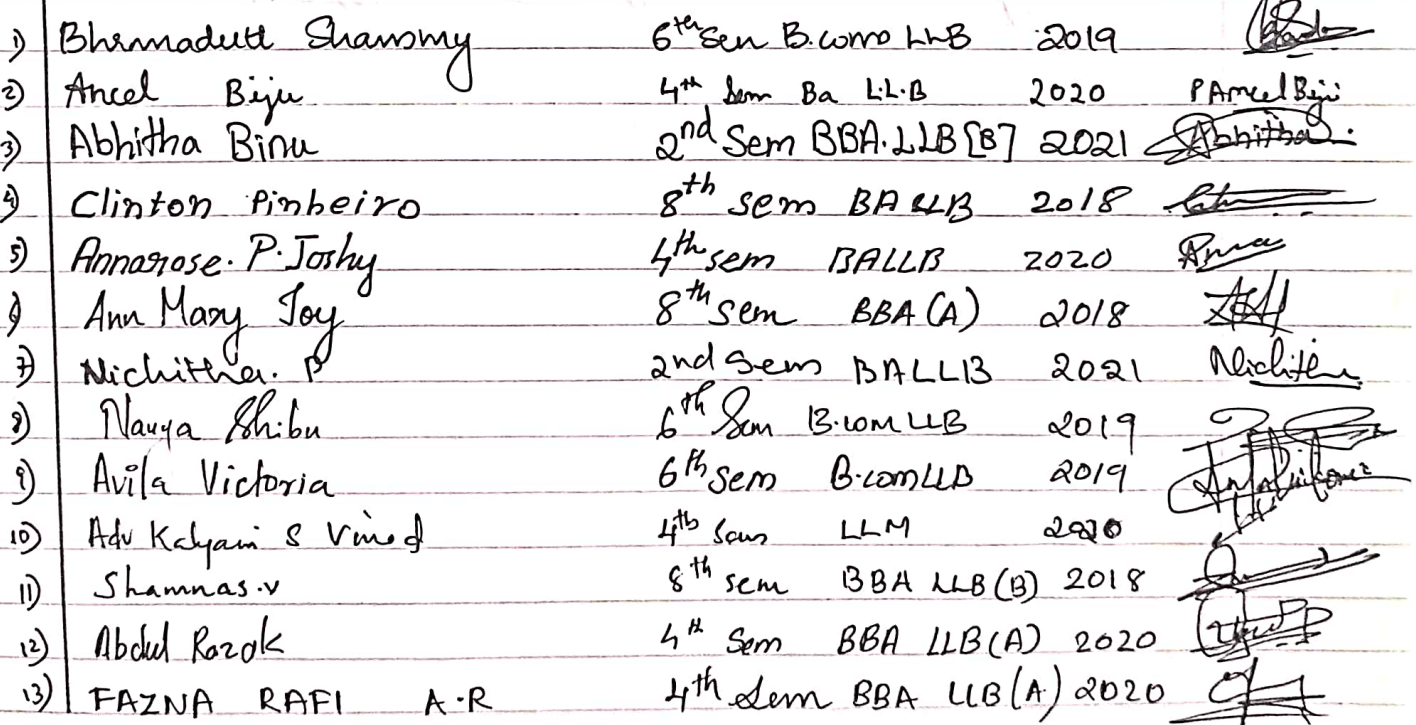 1) Bhrmadutt Shammy 6th Sem B.com LLB 2019
2) Ancel Biju 4th Sem Ba L.L.B 2020 P Ancel Biju
3) Abhitha Binu 2nd Sem BBA.LLB [B] 2021 Abhitha
4) Clinton Pinheiro 8th sem BA LLB 2018
5) Annarose. P. Joshy 4th sem BALLB 2020 Anna
6) Ann Mary Joy 8th sem BBA (A) 2018
7) Nichitha. P 2nd Sem BALLB 2021 Nichitha
8) Navya Shibu 6th Sem B.com LLB 2019
9) Avila Victoria 6th sem B.com LLB 2019
10) Adv Kalyani S Vinod 4th Sem LLM 2020
11) Shamnas.v 8th sem BBA LLB (B) 2018
12) Abdul Razak 4th Sem BBA LLB (A) 2020
13) FAZNA RAFI A.R 4th Sem BBA LLB (A) 2020